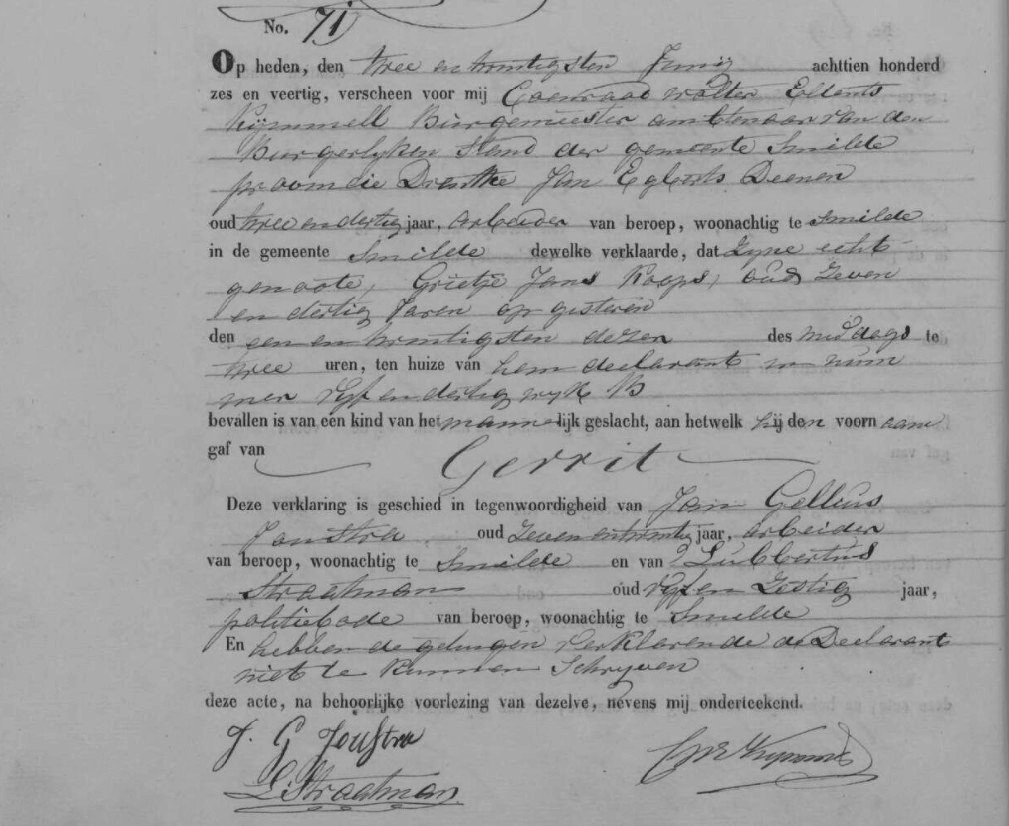 No. 71
Op heden, den twee en twintigsten Junij achttien honderd
zes en veertig, verscheen voor mij Coenraad Wolter Ellents
Kijmmell Burgemeester ambtenaar van den
Burgerlyken Stand der gemeente Smilde
provincie Drenthe Jan Egberts Deenen
oud twee en dertig jaar, arbeider van beroep, woonachtig te Smilde
in de gemeente Smilde dewelke verklaarde, dat zyne echt-
genoote, Grietje Jans Koops, oud zeven
en dertig Jaren op gisteren
den een en twintigsten dezer des middags te
twee uren, ten huize van hem declarant in num
mer vyf en dertig wyk B
bevallen is van een kind van het mannelijk geslacht, aan hetwelk hij den voornaam
gaf van Gerrit
Deze verklaring is geschied in tegenwoordigheid van Jan Gellius
Joustra, oud zeven en twintig jaar, arbeider
van beroep, woonachtig te Smilde en van Lubbertus
Straatman oud vyf en zestig jaar,
politiebode van beroep, woonachtig te Smilde
En hebben de getuigen verklarende de Declarant
niet te kunnen Schryven
deze acte, na behoorlijke voorlezing van dezelve, nevens mij onderteekend.
J. G Joustra
L Straatman